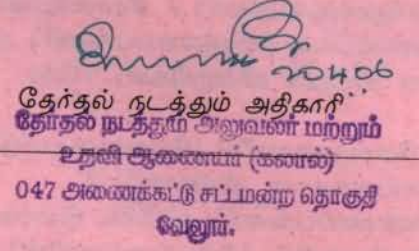 20406
தேர்தல் நடத்தும் அதிகாரி
தேர்தல் நடத்தும் அலுவலர் மற்றும்
உதவி ஆணையர் (கலால்)
047 அணைக்கட்டு சட்டமன்ற தொகுதி
வேலூர்.